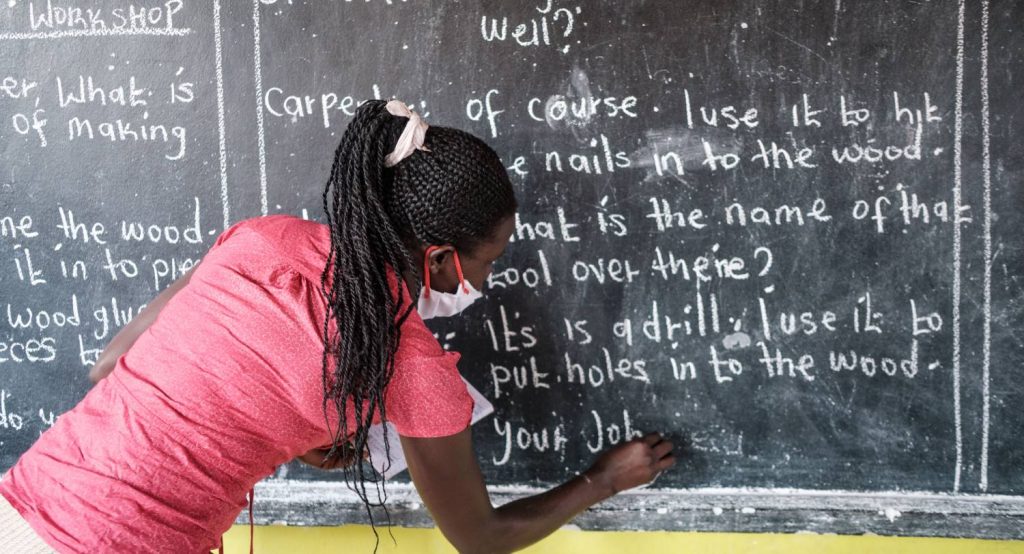 WORKSHOP
er, What is
of making
me the wood.
it in to
wood glu
eces to
do
well?
of course. I use it to hit
nails in to the wood.
hat is the name of that
tool over there?
Its is a drill. I use it to
put holes in to the wood.
your Job